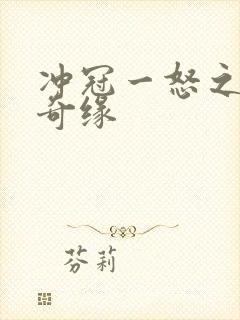 冲冠一怒之
奇缘
芬莉